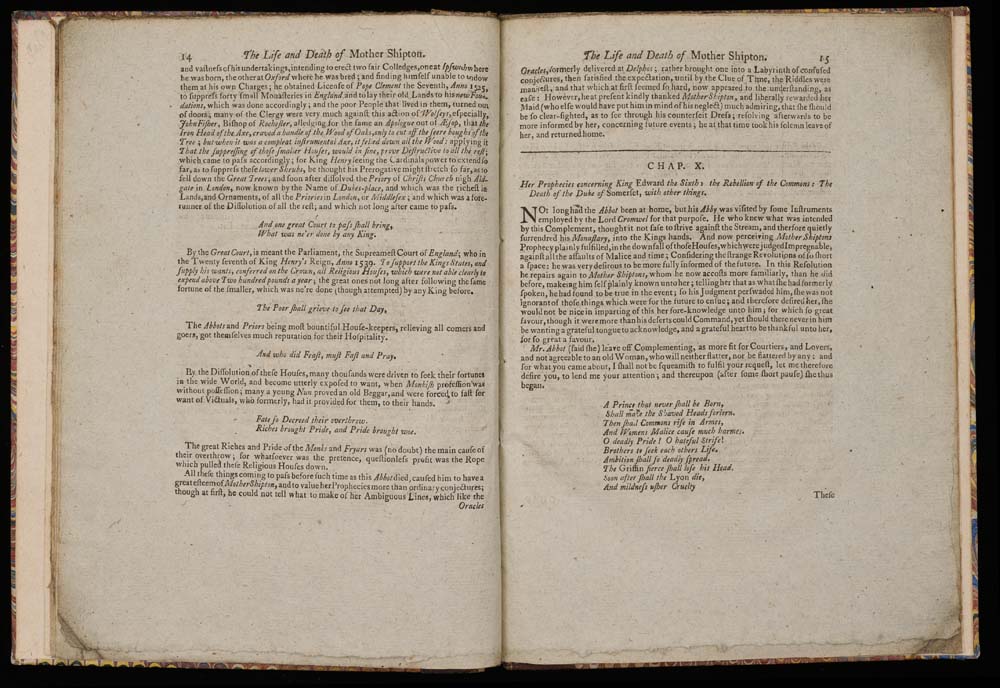 14 The Life and Death of Mother Shipton.
and vastness of his undertakings, intending to erect two fair Colledges, one at Ipswich where
he was born, the other at Oxford where he was bred; and finding himself unable to endow
them at his own Charges; he obtained License of Pope Clement the Seventh, Anno 1525,
to suppress forty small Monasteries in England and to lay their old Lands to his new Foun-
dations, which was done accordingly; and the poor People that lived in them, turned out
of doors; many of the Clergy were very much against this action of Wolseys, especially,
John Fisher, Bishop of Rochester, alledging for the same an Apologue out of Æsop, that the
Iron Head of the Axe, craved a handle of the Wood of Oaks, only to cut off the seere boughs of the
Tree; but when it was a compleat instrumental Axe, it felled down all the Wood: applying it
That the suppressing of those smaller Houses, would in fine, prove Destructive to all the rest;
which came to pass accordingly; for King Henry seeing the Cardinals power to extend so
far, as to suppress these lower Shrubs, he thought his Prerogative might stretch so far, as to
fell down the Great Trees; and soon after dissolved the Priory of Christs Church nigh Ald-
gate in London, now known by the Name of Dukes-place, and which was the richest in
Lands, and Ornaments, of all the Priories in London, or Middlesex; and which was a fore-
runner of the Dissolution of all the rest; and which not long after came to pass.
And one great Court to pass shall bring,
What was ne'er done by any King.
By the Great Court, is meant the Parliament, the Supreamest Court of England; who in
the Twenty seventh of King Henry's Reign, Anno 1539. To support the Kings States, and
supply his wants, conferred on the Crown, all Religious Houses, which were not able clearly to
expend above Two hundred pounds a year; the great ones not long after following the same
fortune of the smaller, which was ne're done (though attempted) by any King before.
The Poor shall grieve to see that Day,
The Abbots and Priors being most bountiful House-keepers, relieving all comers and
goers, got themselves much reputation for their Hospitality.
And who did Feast, must Fast and Pray.
By the Dissolution of these Houses, many thousands were driven to seek their fortunes
in the wide World, and become utterly exposed to want, when Monkish profession was
without possession; many a young Nun proved an old Beggar, and were forced to fast for
want of Victuals, who formerly, had it provided for them, to their hands.
Fate so Decreed their overthrow.
Riches brought Pride, and Pride brought woe.
The great Riches and Pride of the Monks and Fryars was (no doubt) the main cause of
their overthrow; for whatsoever was the pretence, questionless profit was the Rope
which pulled these Religious Houses down.
All these things coming to pass before such time as this Abbot died, caused him to have a
great esteem of Mother Shipton, and to value her Prophecies more than ordinary conjectures;
though at first, he could not tell what to make of her Ambiguous Lines, which like the
Oracles
The Life and Death of Mother Shipton. 15
Oracles, formerly delivered at Delphos; rather brought one into a Labyrinth of confused
conjectures, then satisfied the expectation, until by the Clue of Time, the Riddles were
manifest, and that which at first seemed so hard, now appeared to the understanding, as
easie: However, he at present kindly thanked Mother Shipton, and liberally rewarded her
Maid (who else would have put him in mind of his neglect) much admiring, that she should
be so clear-sighted, as to see through his counterfeit Dress; resolving afterwards to be
more informed by her, concerning future events; he at that time took his solemn leave of
her, and returned home.
CHAP. X.
Her Prophecies concerning King Edward the Sixth: the Rebellion of the Commons: The
Death of the Duke of Somerset, with other things.
NOt long had the Abbot been at home, but his Abby was visited by some Instruments
employed by the Lord Cromwel for that purpose. He who knew what was intended
by this Complement, thought it not safe to strive against the Stream, and therfore quietly
surrendred his Monastery, into the Kings hands. And now perceiving Mother Shiptons
Prophecy plainly fulfilled, in the downfall of those Houses, which were judged Impregnable,
against all the assaults of Malice and time; Considering the strange Revolutions of so short
a space: he was very desirous to be more fully informed of the future. In this Resolution
he repairs again to Mother Shiptons, whom he now accosts more familiarly, than he did
before, makeing him self plainly known unto her; telling her that as what she had formerly
spoken, he had found to be true in the event; so his Judgment perswaded him, she was not
ignorant of those things which were for the future to ensue; and therefore desired her, she
would not be nice in imparting of this her fore-knowledge unto him; for which so great
favour, though it were more than his deserts could Command, yet should there never in him
be wanting a grateful tongue to acknowledge, and a grateful heart to be thankful unto her,
for so great a favour.
Mr. Abbot (said she) leave off Complementing, as more fit for Courtiers, and Lovers,
and not agreeable to an old Woman, who will neither flatter, nor be flattered by any: and
for what you came about, I shall not be squeamish to fulfil your request, let me therefore
desire you, to lend me your attention; and thereupon (after some short pause) she thus
began.
A Prince that never shall be Born,
Shall make the Shaved Heads forlorn.
Then shall Commons rise in Armes,
And Womens Malice cause much harmes.
O deadly Pride! O hateful Strife!
Brothers to seek each others Life.
Ambition shall so deadly spread.
The Griffin fierce shall lose his Head.
Soon after shall the Lyon die,
And mildness usher Cruelty
These